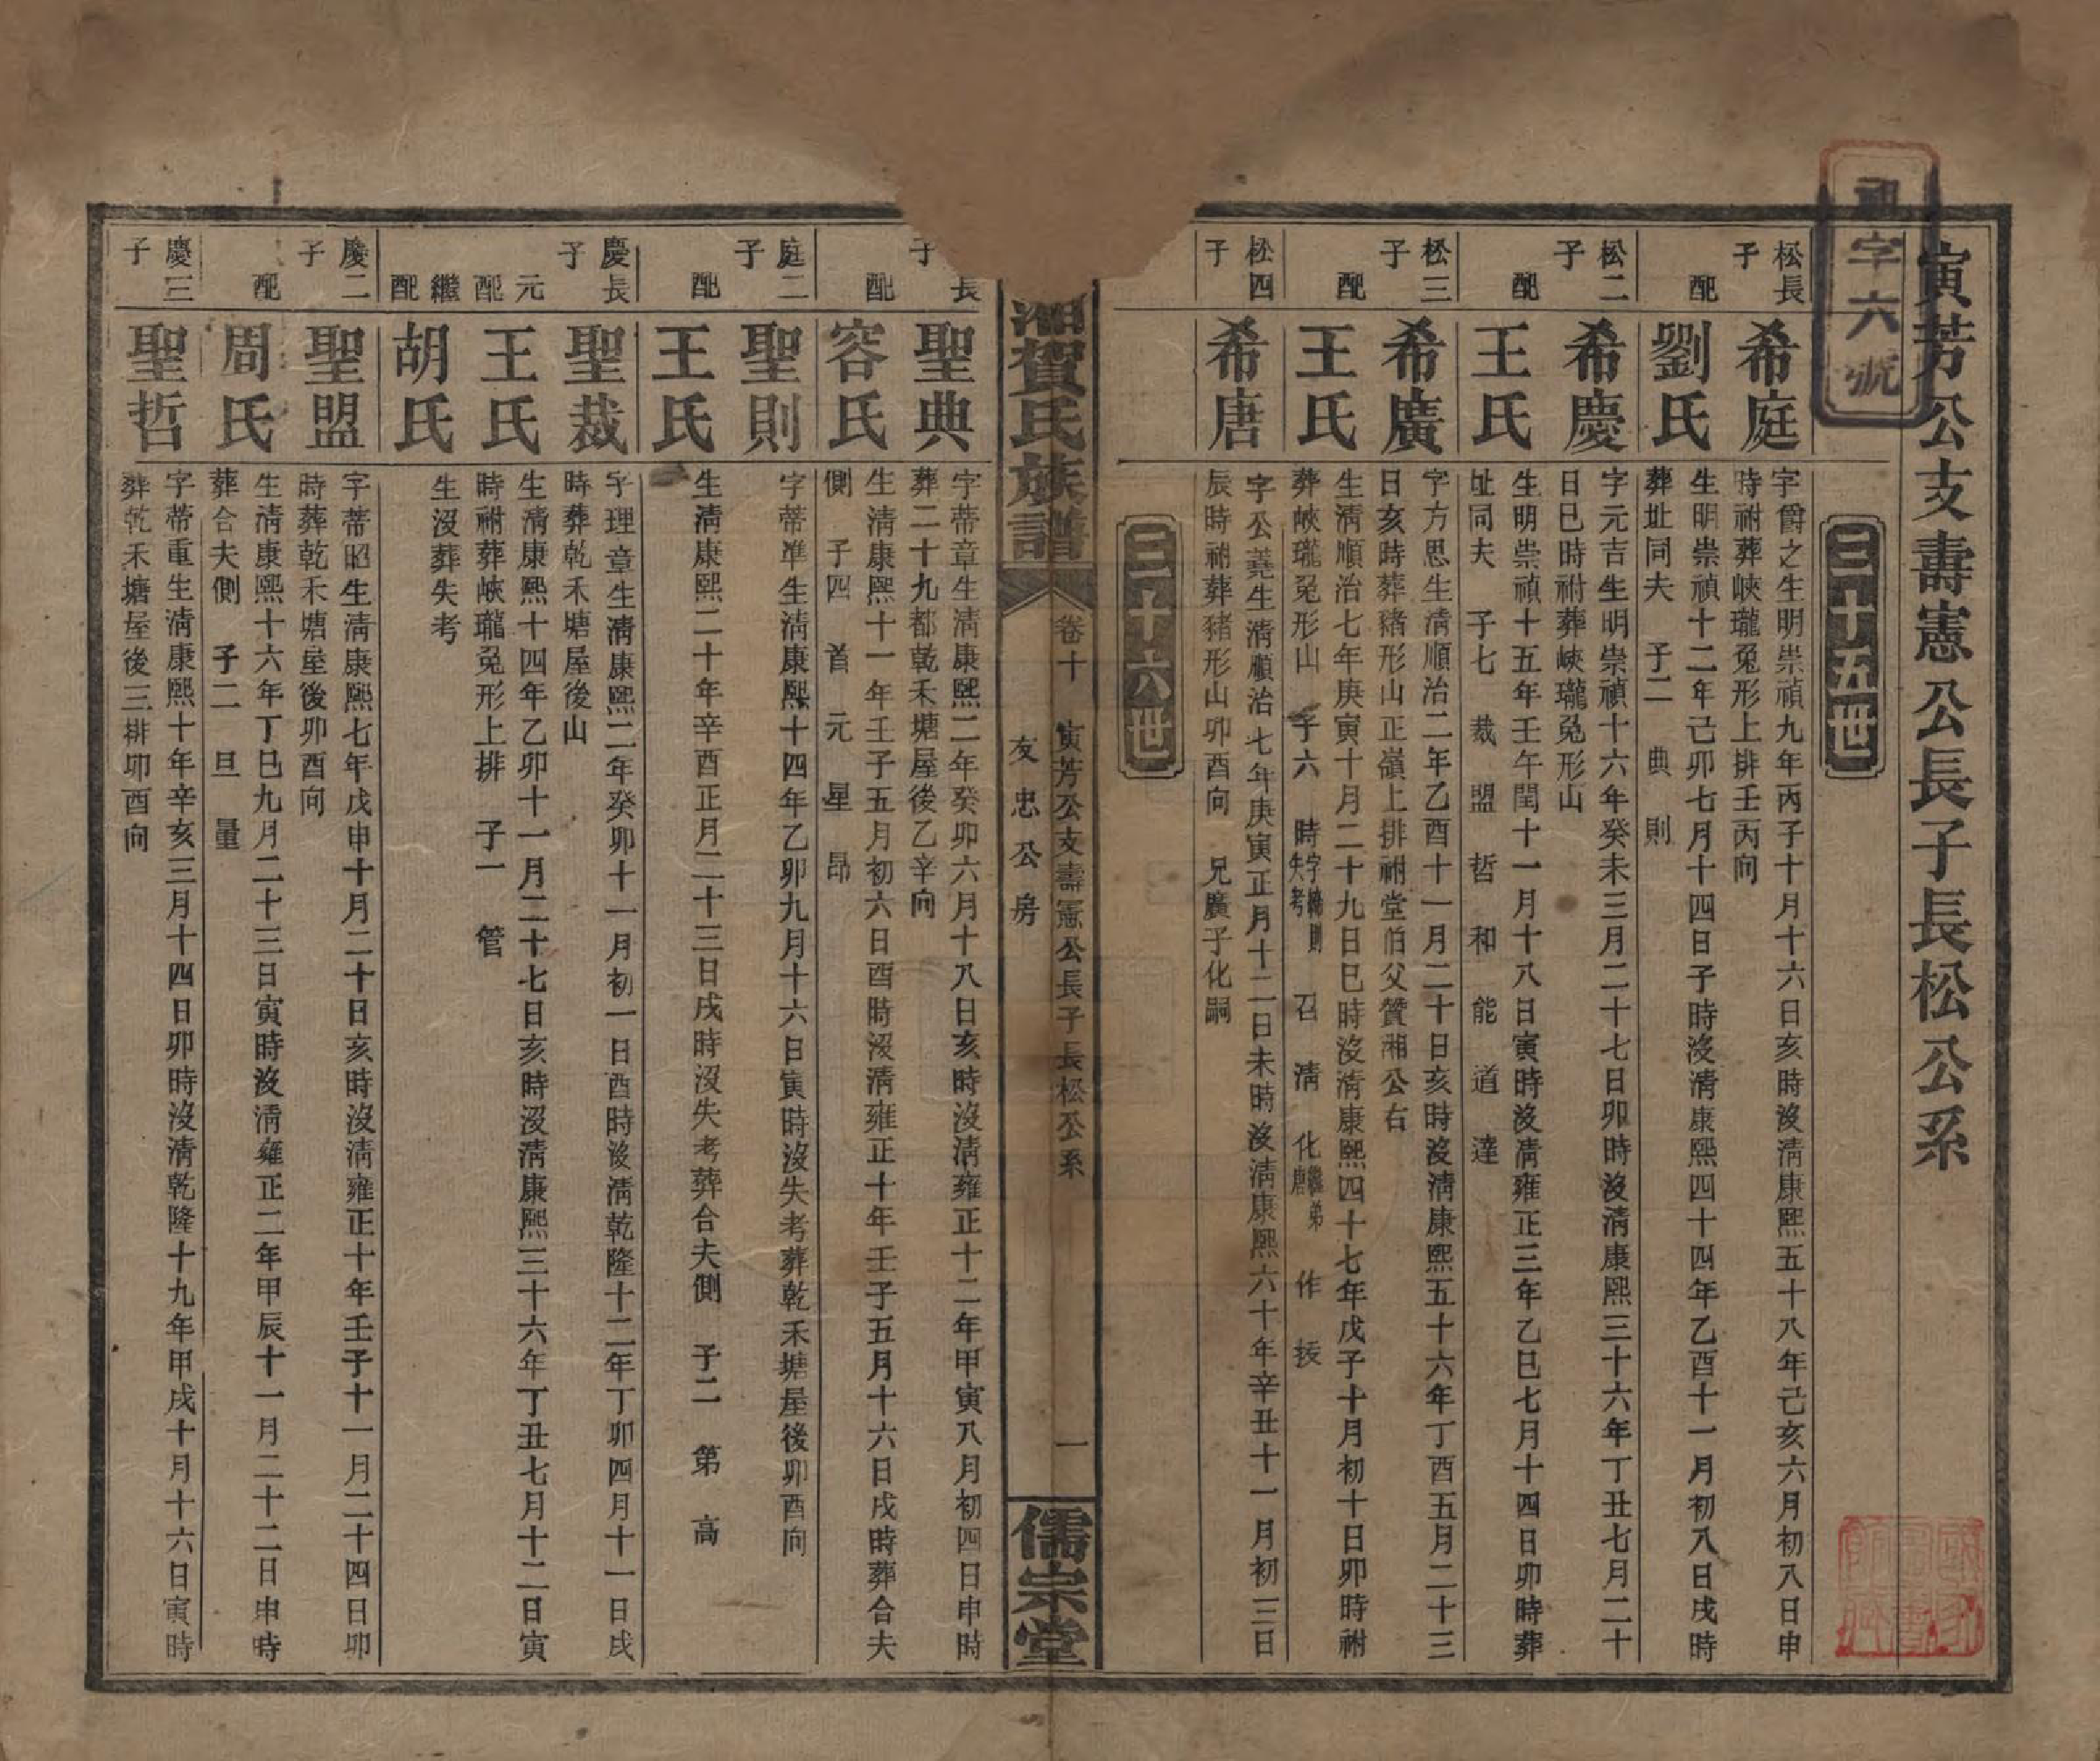 寅芳公支壽憲公長子長松公系
字六號
三十五世
松長子
希庭
字爵之生明崇禎九年丙子十月十六日亥時沒淸康熙五十八年己亥六月初八日申
時祔葬峽瓏兔形上排壬丙向
配
劉氏
生明崇禎十二年己卯七月十四日子時沒淸康熙四十四年乙酉十一月初八日戌時
葬址同夫 子二 典 則
松二子
希慶
字元吉生明崇禎十六年癸未三月二十七日卯時沒淸康熙三十六年丁丑七月二十
日巳時祔葬峽瓏兔形山
配
王氏
生明崇禎十五年壬午閏十一月十八日寅時沒淸雍正三年乙巳七月十四日卯時葬
址同夫 子七 裁 盟 哲 和 能 道 達
松三子
希廣
字方思生淸順治二年乙酉十一月二十日亥時沒淸康熙五十六年丁酉五月二十三
日亥時葬豬形山正嶺上排祔堂伯父贊湘公右
配
王氏
生淸順治七年庚寅十月二十九日巳時沒淸康熙四十七年戊子十月初十日卯時祔
葬峽瓏兔形山 子六 時字繩則失考 召 淸 化繼弟唐 作 技
松四子
希唐
字公蕘生淸順治七年庚寅正月十二日未時沒淸康熙六十年辛丑十一月初三日
辰時祔葬豬形山卯酉向 兄廣子化嗣
三十六世
湘賀氏族譜
卷十 寅芳公支壽憲公長子長松公系
友忠公房
一
儒宗堂
長子
聖典
字蒂章生淸康熙二年癸卯六月十八日亥時沒淸雍正十二年甲寅八月初四日申時
葬二十九都乾禾塘屋後乙辛向
配
容氏
生淸康熙十一年壬子五月初六日酉時沒淸雍正十年壬子五月十六日戌時葬合夫
側 子四 首 元 星 昂
庭二子
聖則
字蒂準生淸康熙十四年乙卯九月十六日寅時沒失考葬乾禾塘屋後卯酉向
配
王氏
生淸康熙二十年辛酉正月二十三日戌時沒失考葬合夫側 子二 第 高
慶長子
聖裁
字理章生淸康熙二年癸卯十一月初一日酉時沒淸乾隆十二年丁卯四月十一日戌
時葬乾禾塘屋後山
元配
王氏
生淸康熙十四年乙卯十一月二十七日亥時沒淸康熙三十六年丁丑七月十二日寅
時祔葬峽瓏兔形上排 子一 管
繼配
胡氏
生沒葬失考
慶二子
聖盟
字蒂昭生淸康熙七年戊申十月二十日亥時沒淸雍正十年壬子十一月二十四日卯
時葬乾禾塘屋後卯酉向
配
周氏
生淸康熙十六年丁巳九月二十三日寅時沒淸雍正二年甲辰十一月二十二日申時
葬合夫側 子二 旦 量
慶三子
聖哲
字蒂重生淸康熙十年辛亥三月十四日卯時沒淸乾隆十九年甲戌十月十六日寅時
葬乾禾塘屋後三排卯酉向